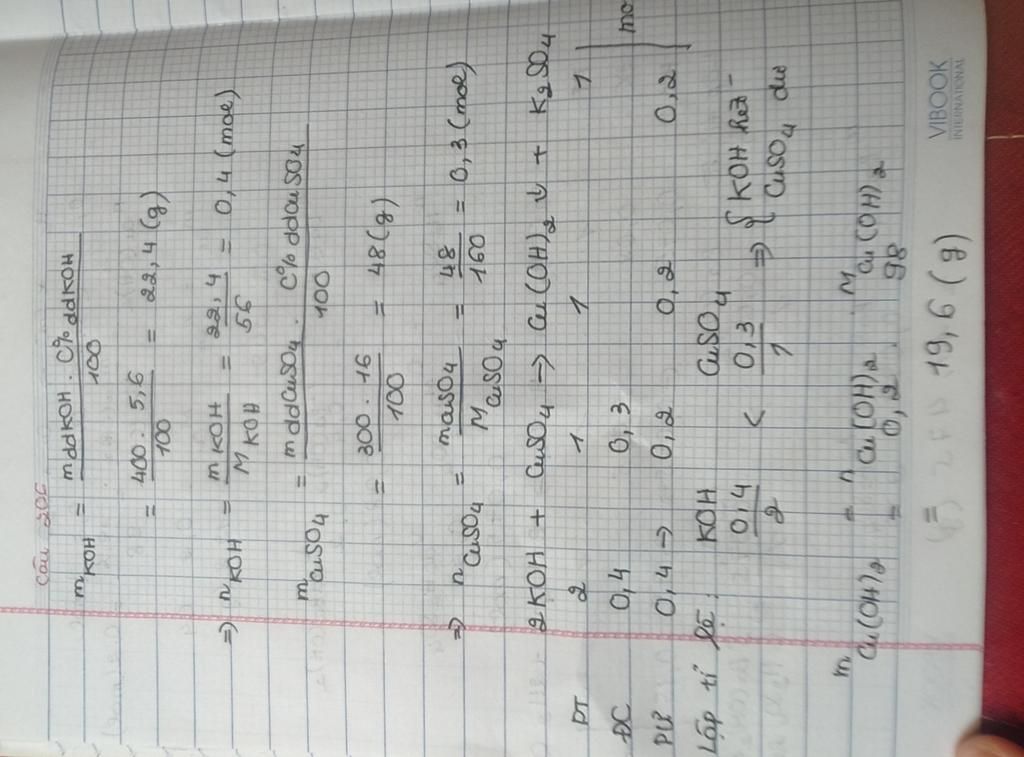 Câu 206
m KOH = mddKOH . C% ddKOH / 100
= 400 . 5,6 / 100 = 22,4 (g)
=> n KOH = m KOH / M KOH = 22,4 / 56 = 0,4 (mol)
m CuSO4 = mddCuSO4 . C% ddCuSO4 / 100
= 300 . 16 / 100 = 48 (g)
=> n CuSO4 = mCuSO4 / M CuSO4 = 48 / 160 = 0,3 (mol)
2KOH + CuSO4 -> Cu(OH)2 ↓ + K2SO4
PT 2 1 1 1
ĐC 0,4 0,3
PƯ 0,4 -> 0,2 0,2 0,2
Lập tỉ lệ : KOH CuSO4
0,4 / 2 < 0,3 / 1 => { KOH hết
CuSO4 dư
m Cu(OH)2 = n Cu(OH)2 . M Cu(OH)2
= 0,2 . 98
= 19,6 (g)
VIBOOK
INTERNATIONAL